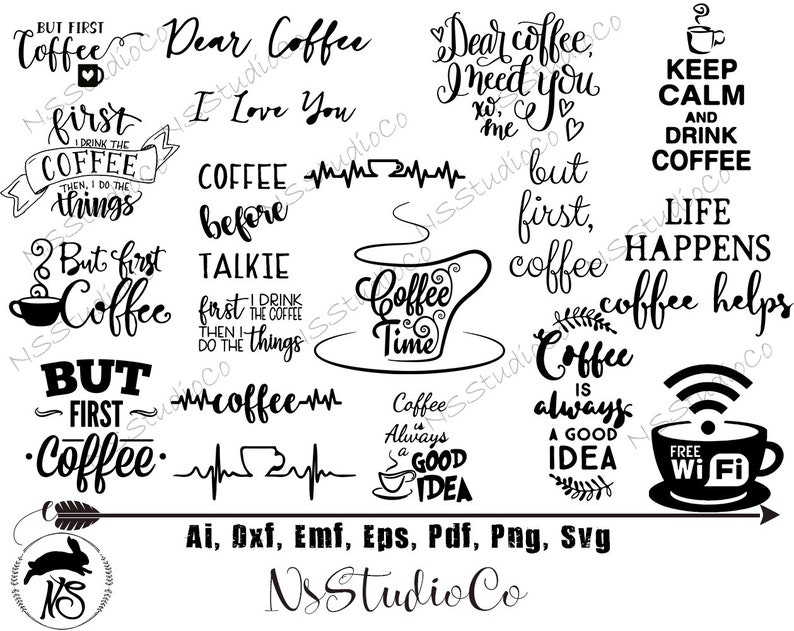 BUT FIRST
Coffee
Dear Coffee
I Love You
Dear coffee,
I need you
xo,
me
KEEP
CALM
AND
DRINK
COFFEE
first
I DRINK THE
COFFEE
THEN, I DO THE
things
COFFEE
before
TALKIE
but
first,
coffee
LIFE
HAPPENS
coffee helps
But first
Coffee
first I DRINK
THE COFFEE
THEN I
DO THE things
Coffee
Time
BUT
FIRST
Coffee
coffee
Coffee
is
Always
a
GOOD
IDEA
Coffee
IS
always
A GOOD
IDEA
FREE
WiFi
Ai, Dxf, Emf, Eps, Pdf, Png, Svg
NS
NsStudioCo
NSStudioCo
NSStudioCo
NSStudioCo
NSStudioCo
NSStudioCo
NSStudioCo
NSStudioCo
NSStudioCo
NSStudioCo